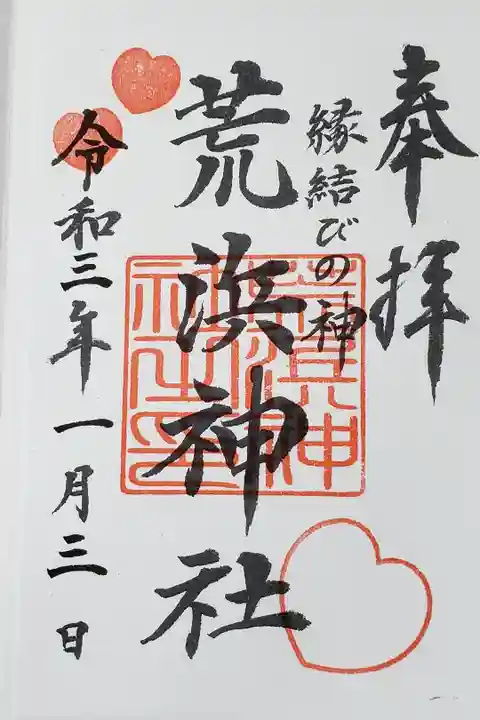 奉拝
縁結びの神
荒浜神社
令和三年一月三日